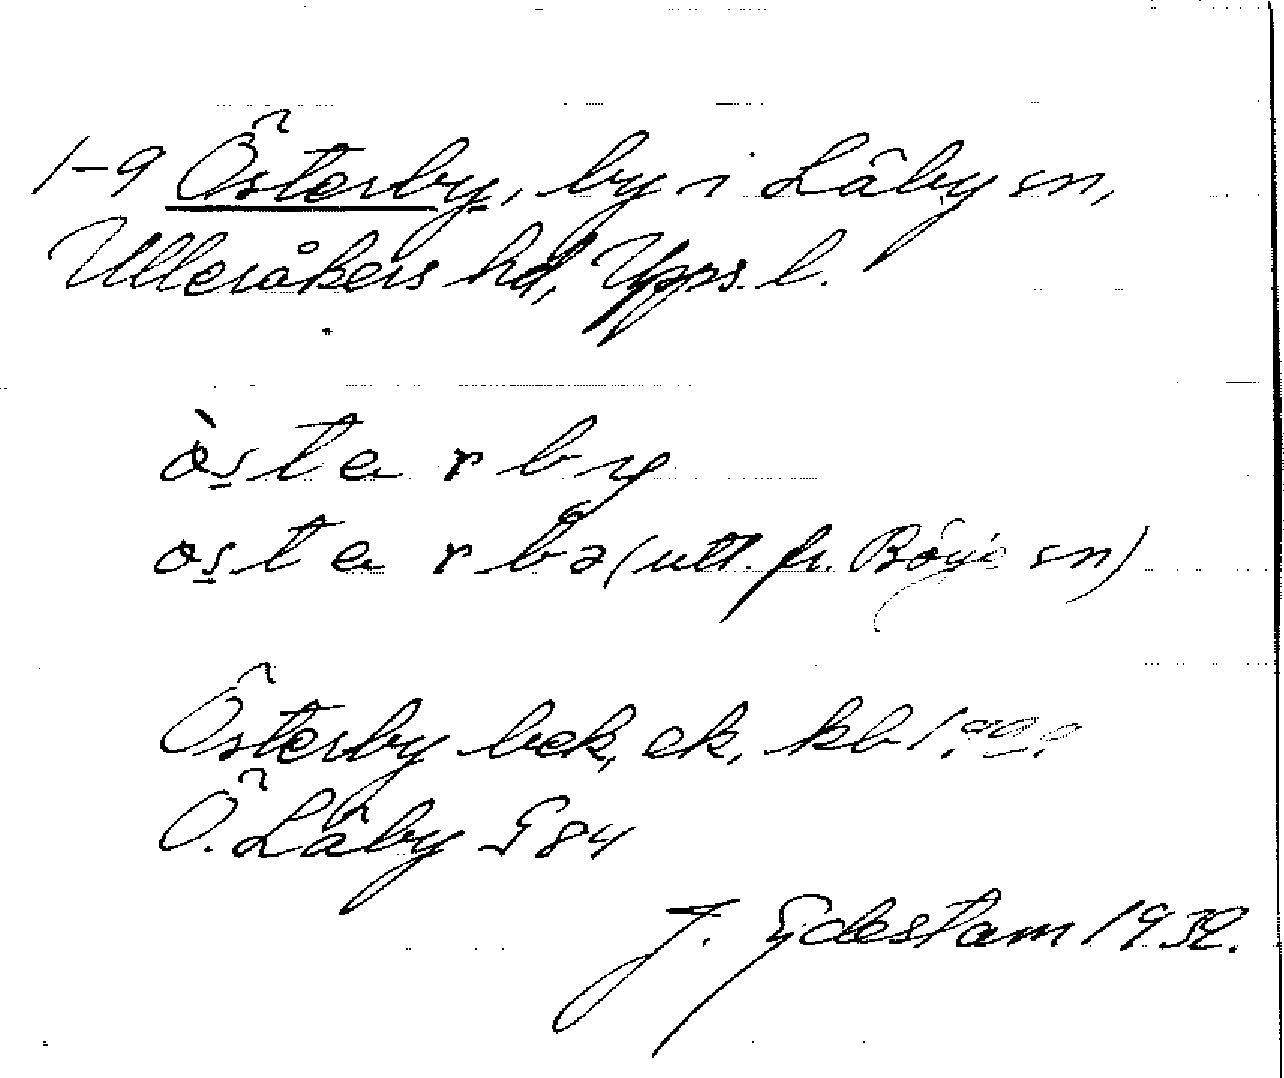 1-9 Österby, by i Låby sn,
Ulleråkers hd, Upps. l.
òste r by
oste r bə (utt. fr. Börje sn)
Österby bek, ek, kb
Ö. Låby G 84
J. Edestam 1932.